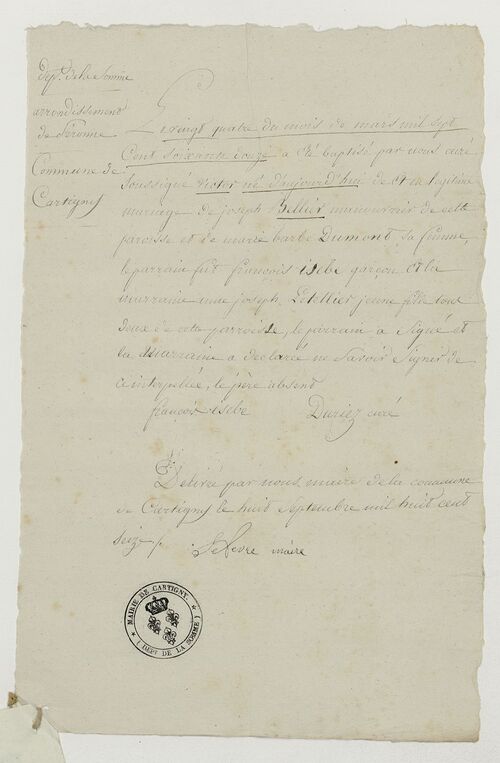 dépt. de la Somme
arrondissement
de Péronne
Commune de
Cartigny
Le vingt quatre du mois de mars mil sept
Cent soixante douze a été baptisé par nous curé
soussigné victor né d'aujourd'hui de et en legitime
mariage de joseph Bellier manouvrier de cette
paroisse et de marie barbe Dumont, sa femme,
le parrain fut françois isebe garçon et la
marraine anne joseph Letellier jeune fille tous
deux de cette parroisse, le parrain a signé et
la marraine a declarée ne savoir signer de
ce interpellée, le père absent
françois isebe Duriez curé
Délivré par nous maire de la commune
de Cartigny le huit Septembre mil huit cent
seize /. Lefevre maire
MAIRIE DE CARTIGNY.
( DEPT DE LA SOMME )